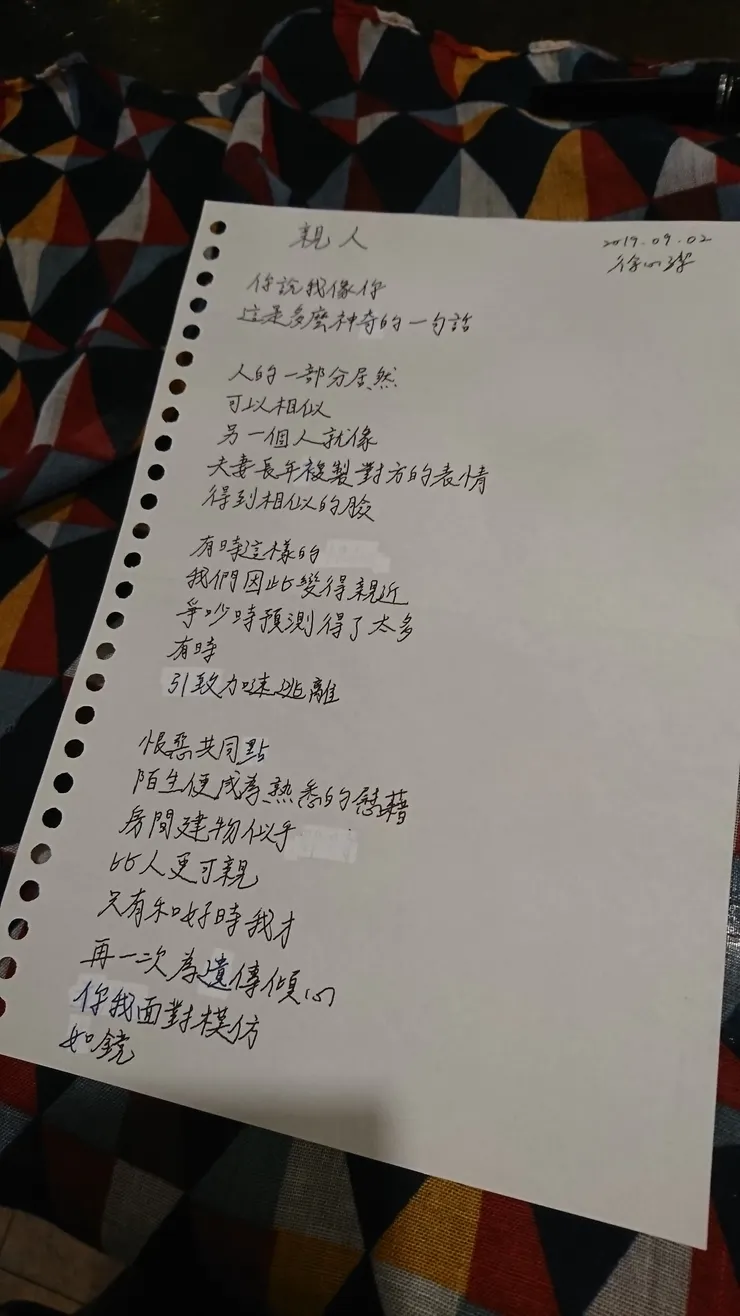 親人
2019.09.02
徐
你說我像你
這是多麼神奇的一句話
人的一部分居然
可以相似
另一個人就像
夫妻長年複製對方的表情
得到相似的臉
有時這樣的
我們因此變得親近
爭吵時預測得了太多
有時
引致加速逃離
恨惡共同點
陌生便成為熟悉的慰藉
房間建物似乎
比人更可親
只有和好時我才
再一次為遺傳傾心
你我面對模仿
如鏡